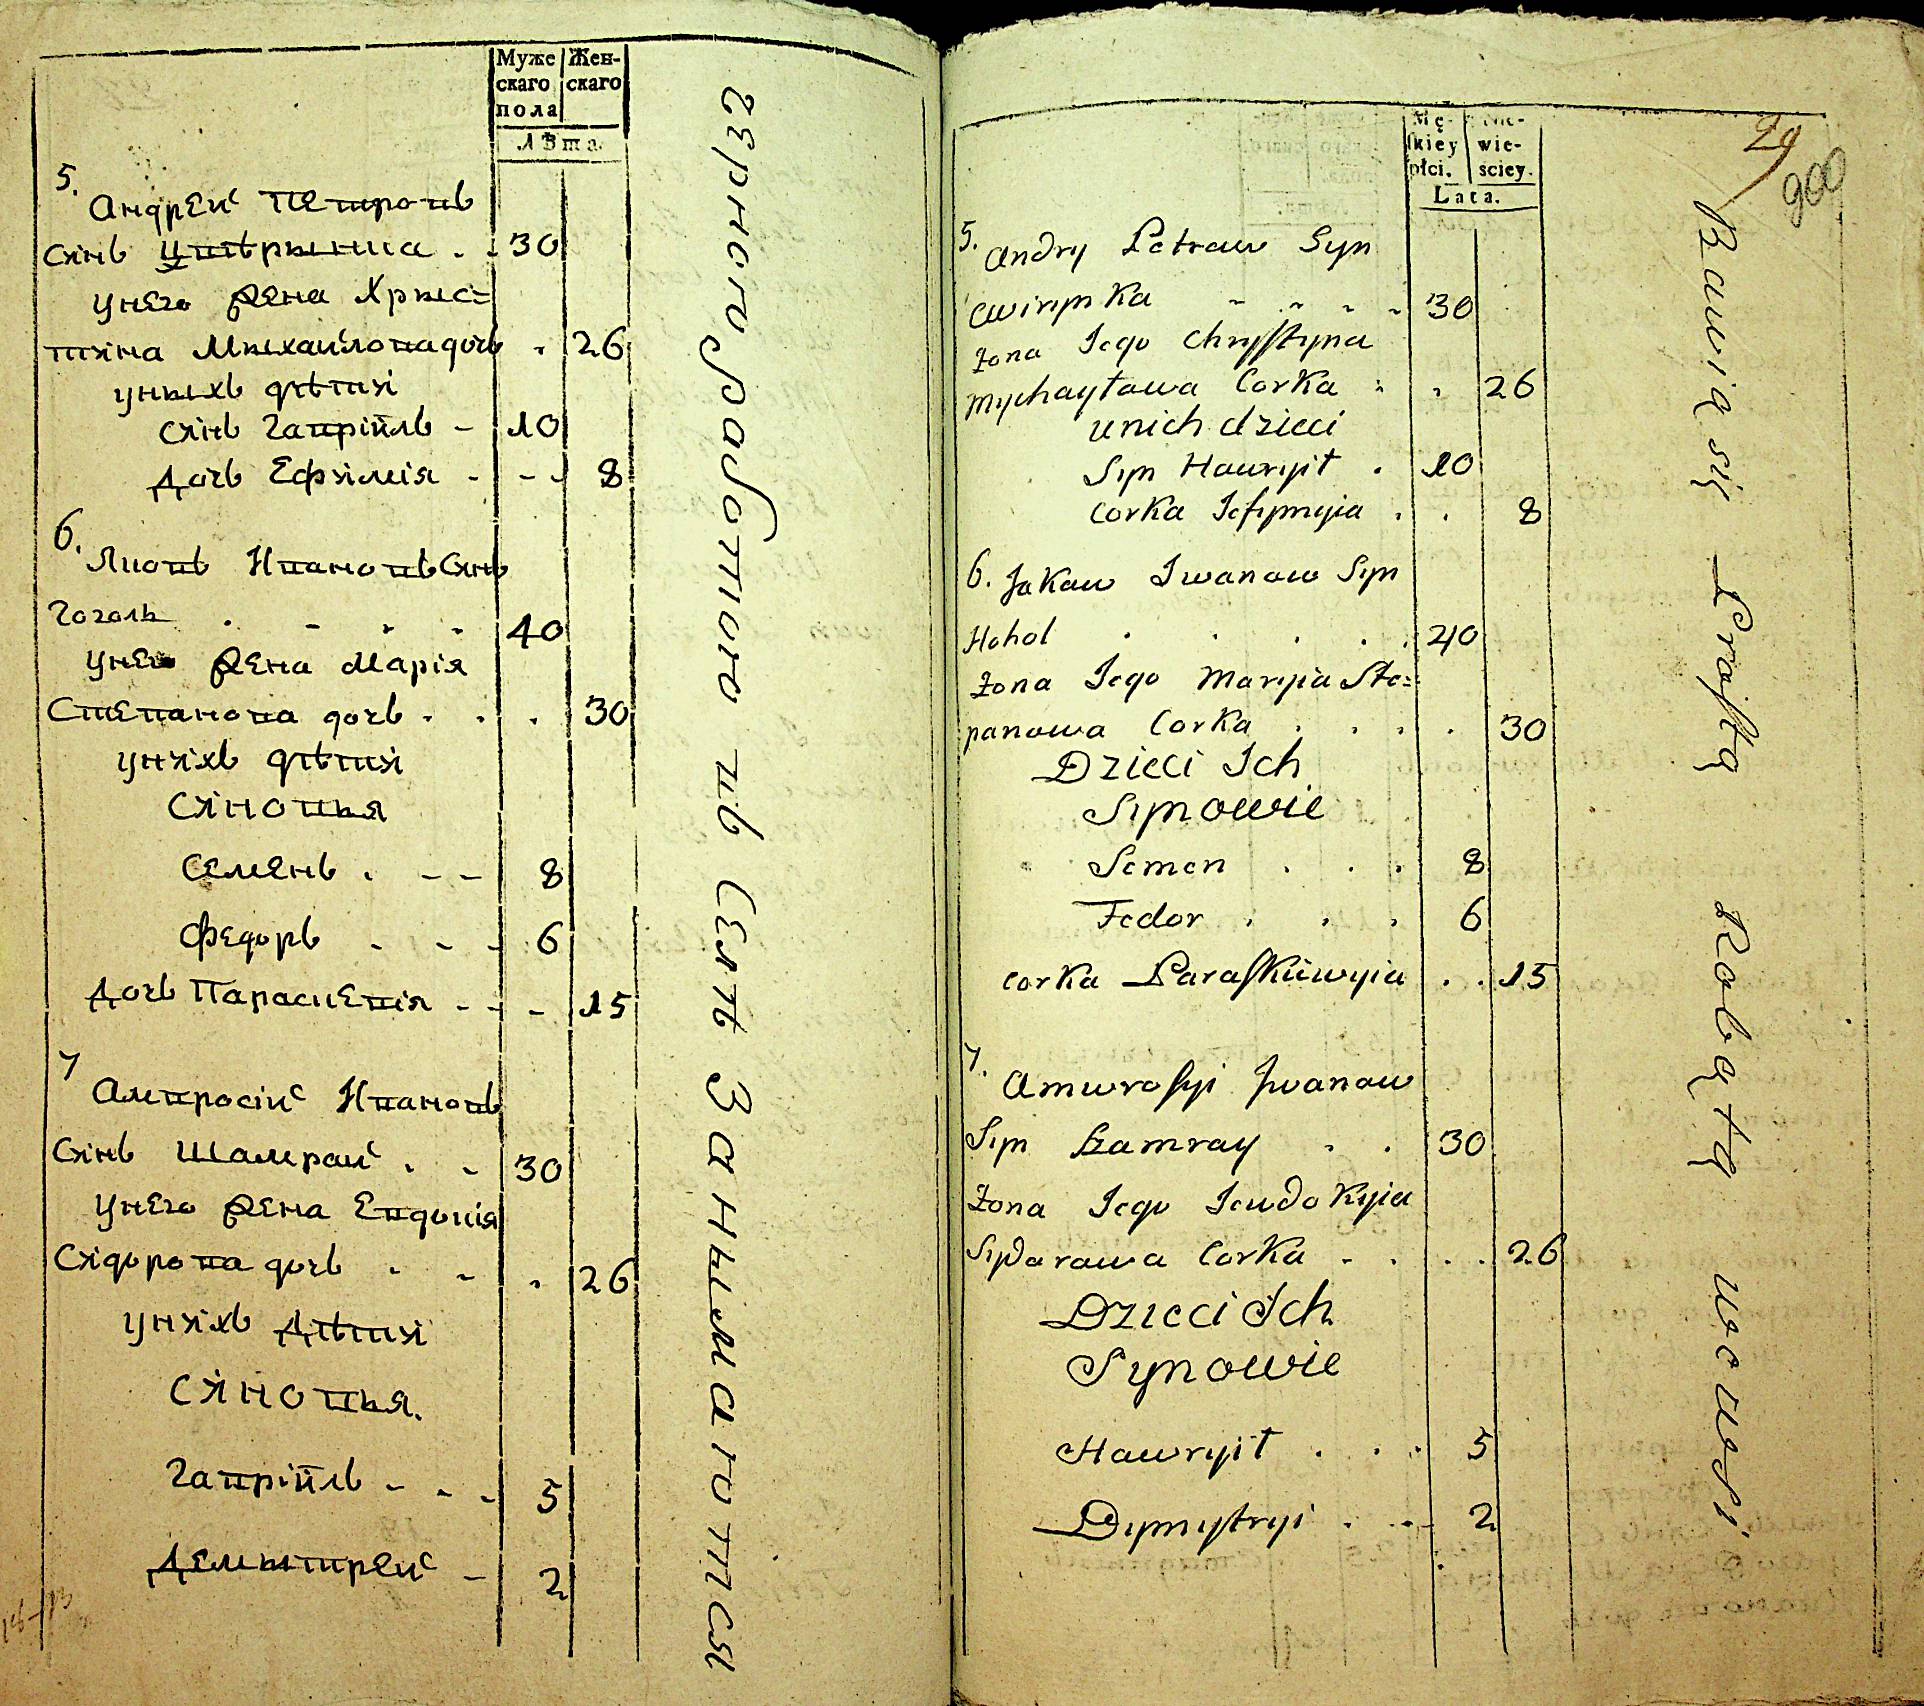 Муже
скаго
пола
Жен-
скаго
Лѣта.
5.
Андрей Петровъ
Синъ Цвѣрынка 30
унего жена Хрис=
тина Михайлова дочь 26
унихъ дѣти
Синъ Гаврійлъ - 10
Дочь Ефимія - - - 8
6.
Яковъ Ивановъ Синъ
Гоголь 40
унего жена Марія
Степанова дочь 30
унихъ дѣти
Синовья
Семенъ 8
Федоръ 6
Дочь Параскевія - - - 15
7
Амвросій Ивановъ
Синъ Шамрай 30
унего жена Евдокія
Сидорова дочь 26
унихъ Дѣти
Синовья.
Гаврійлъ - - - 5
Демытрей - 2
черною работою въ Селѣ Занимаются
29
900
Mę-
skiey
płci.
Nie-
wie-
sciey.
Lata.
5. Andry Petraw Syn
Cwirynka 30
żona Jego Chrystyna
Mychayłowa Corka 26
unich dzieci
Syn Hawryił . 10
Corka Jefymyia . . 8
6. Jakaw Iwanaw Syn
Hohol 40
żona Jego Maryia Ste=
panowa Corka 30
Dzieci Ich
Synowie
Semen 8
Fedor 6
corka Paraskiiwyia . . 15
7.
Amwrosyi Iwanaw
Syn Szamray 30
żona Jego Jewdokyia
Sydarawa Corka 26
Dzieci Ich
Synowie
Hawryił 5
Dymytryi 2
Bawią się Prostą Robątą we wsi